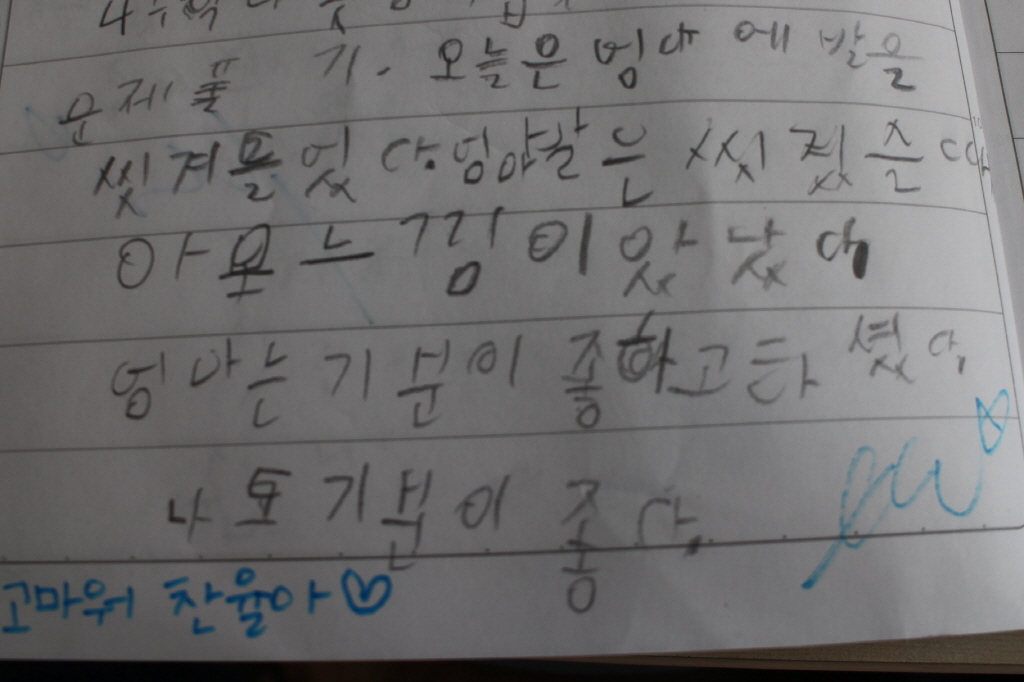 문제풀기. 오늘은 엄마에 발을
씻겨들었다. 엄마발은 씻젔을 때
아못느낌이 있났다
엄마는기분이 좋하고 하셨다.
나도기분이 좋다.
고마워 찬율아♡